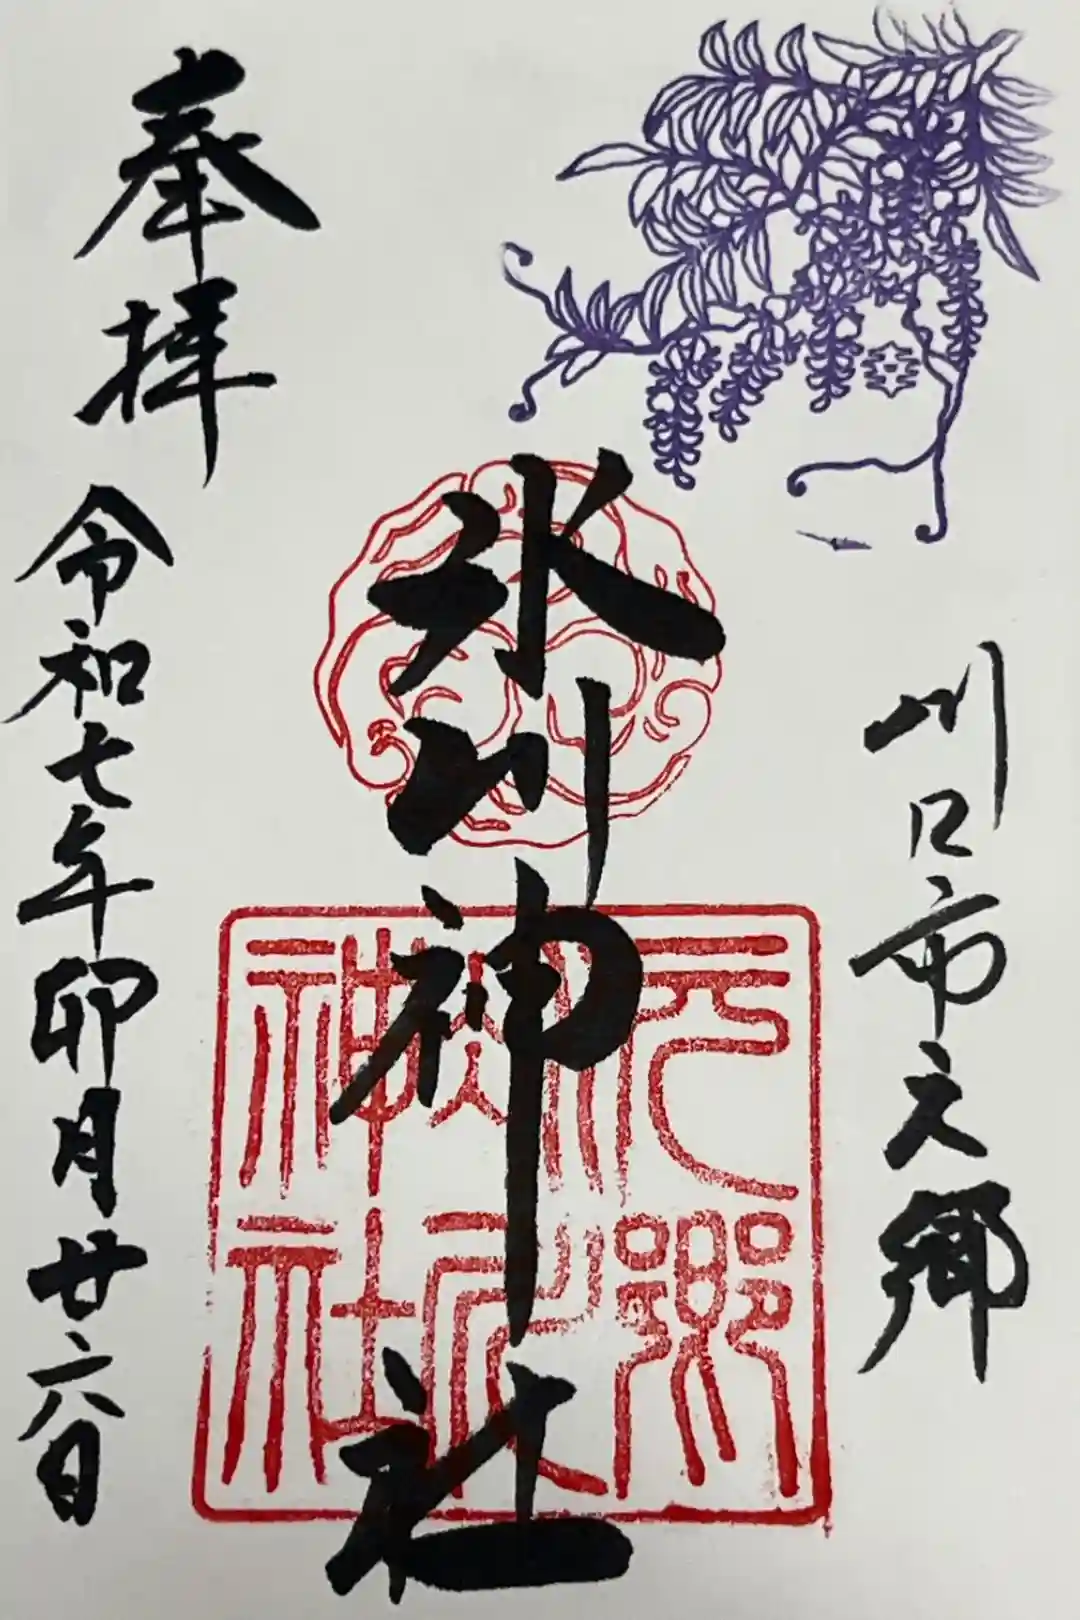 川口市元郷
氷川神社
奉拝
令和七年卯月廿六日
元郷
氷川
神社